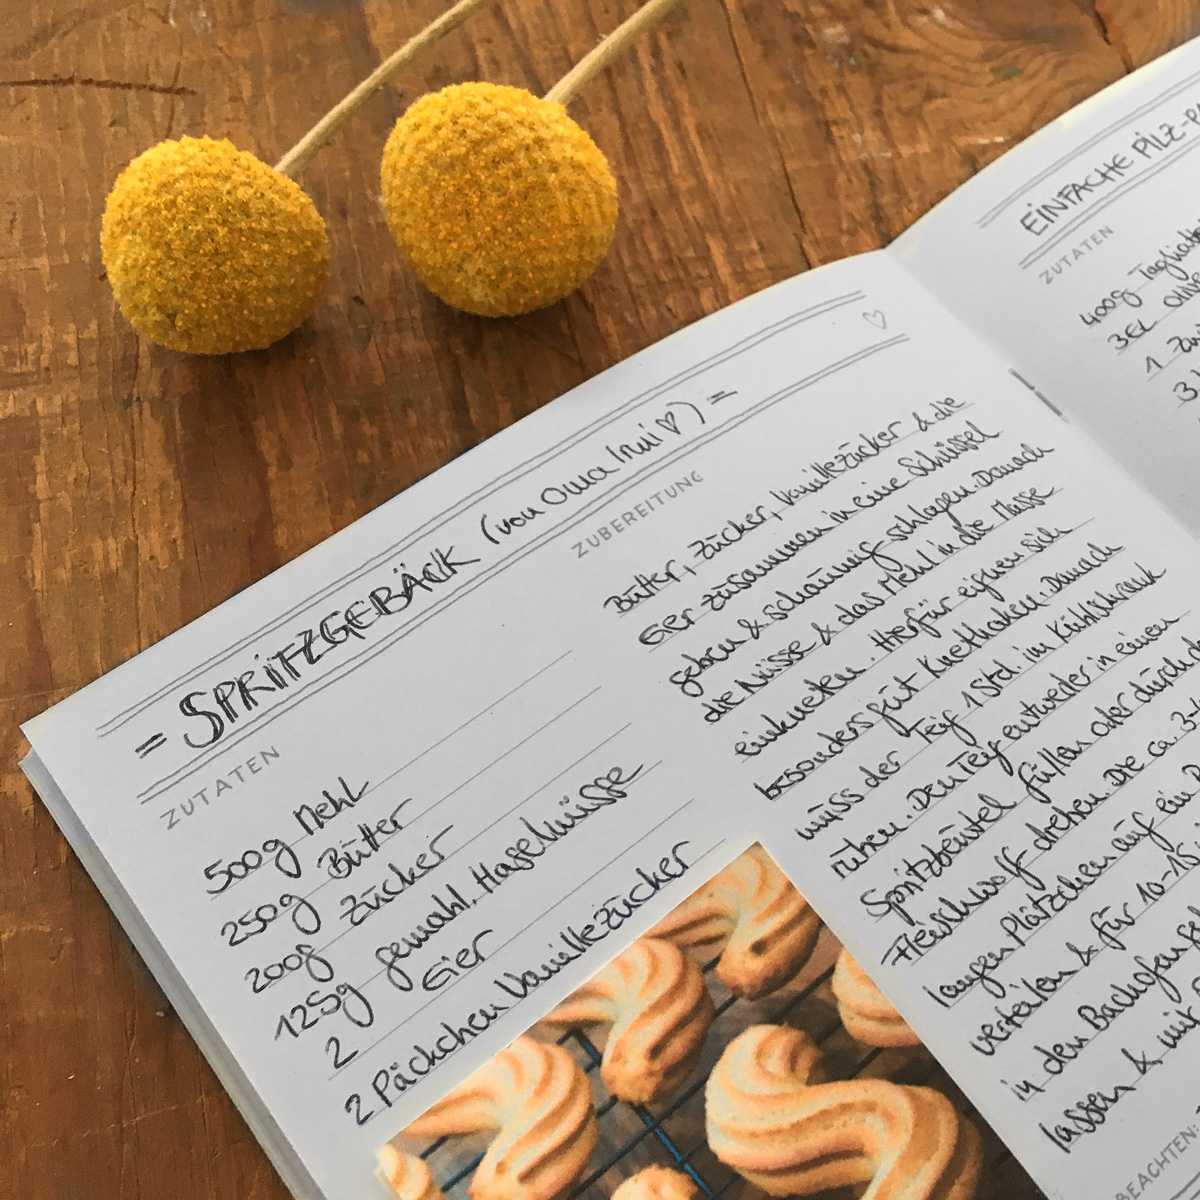 = SPRITZGEBÄCK (von Oma Irmi ♡) =
ZUTATEN
500g Mehl
250g Butter
200g Zucker
125g gemahl. Haselnüsse
2 Eier
2 Päckchen Vanillezucker
ZUBEREITUNG
Butter, Zucker, Vanillezucker & die
Eier zusammen in eine Schüssel
geben & schaumig schlagen. Danach
die Nüsse & das Mehl in die Masse
einkneten. Hierfür eignen sich
besonders gut Knethaken. Danach
muss der Teig 1 Std. im Kühlschrank
ruhen. Den Teig entweder in einen
Spritzbeutel füllen oder durch de
Fleischwolf drehen. Die ca. 3-
langen Plätzchen auf ein
verteilen & für 10-15
in den Backofen
lassen & mit
EACHTEN:
EINFACHE PILZ-
ZUTATEN
400g Tagliat
3EL Olive
1 Zwi
3